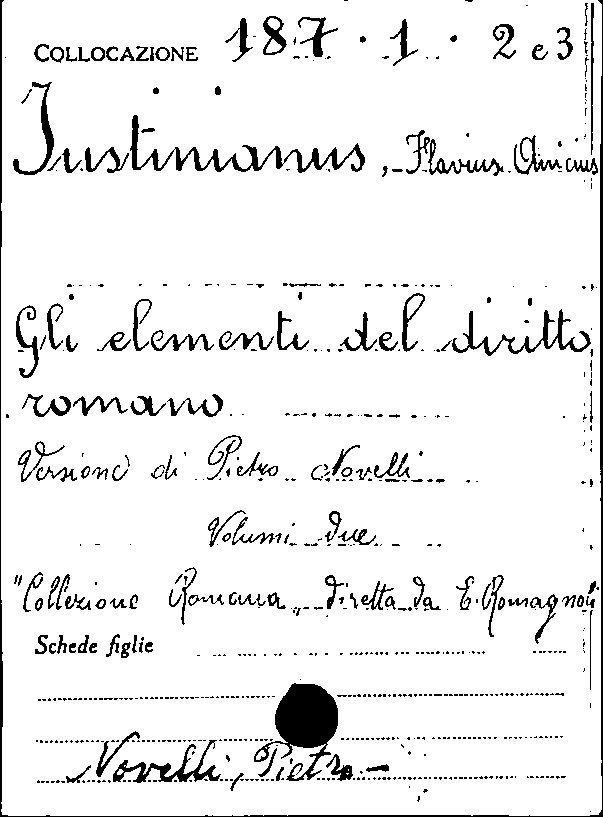 COLLOCAZIONE 187 · 1 · 2 e 3
Iustinianus, Flavius Anicius
Gli elementi del diritto
romano
Versione di Pietro Novelli
Volumi due
"Collezione Romana„ diretta da E. Romagnoli
Schede figlie
Novelli, Pietro -